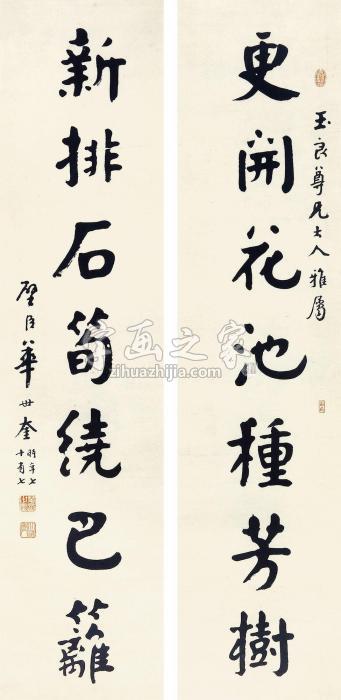 玉良尊兄大人雅屬
更開花池種芳樹
新排石筍繞巴籬
壁臣華世奎
時年七
十有七
字画之家
zihuazhijia.com